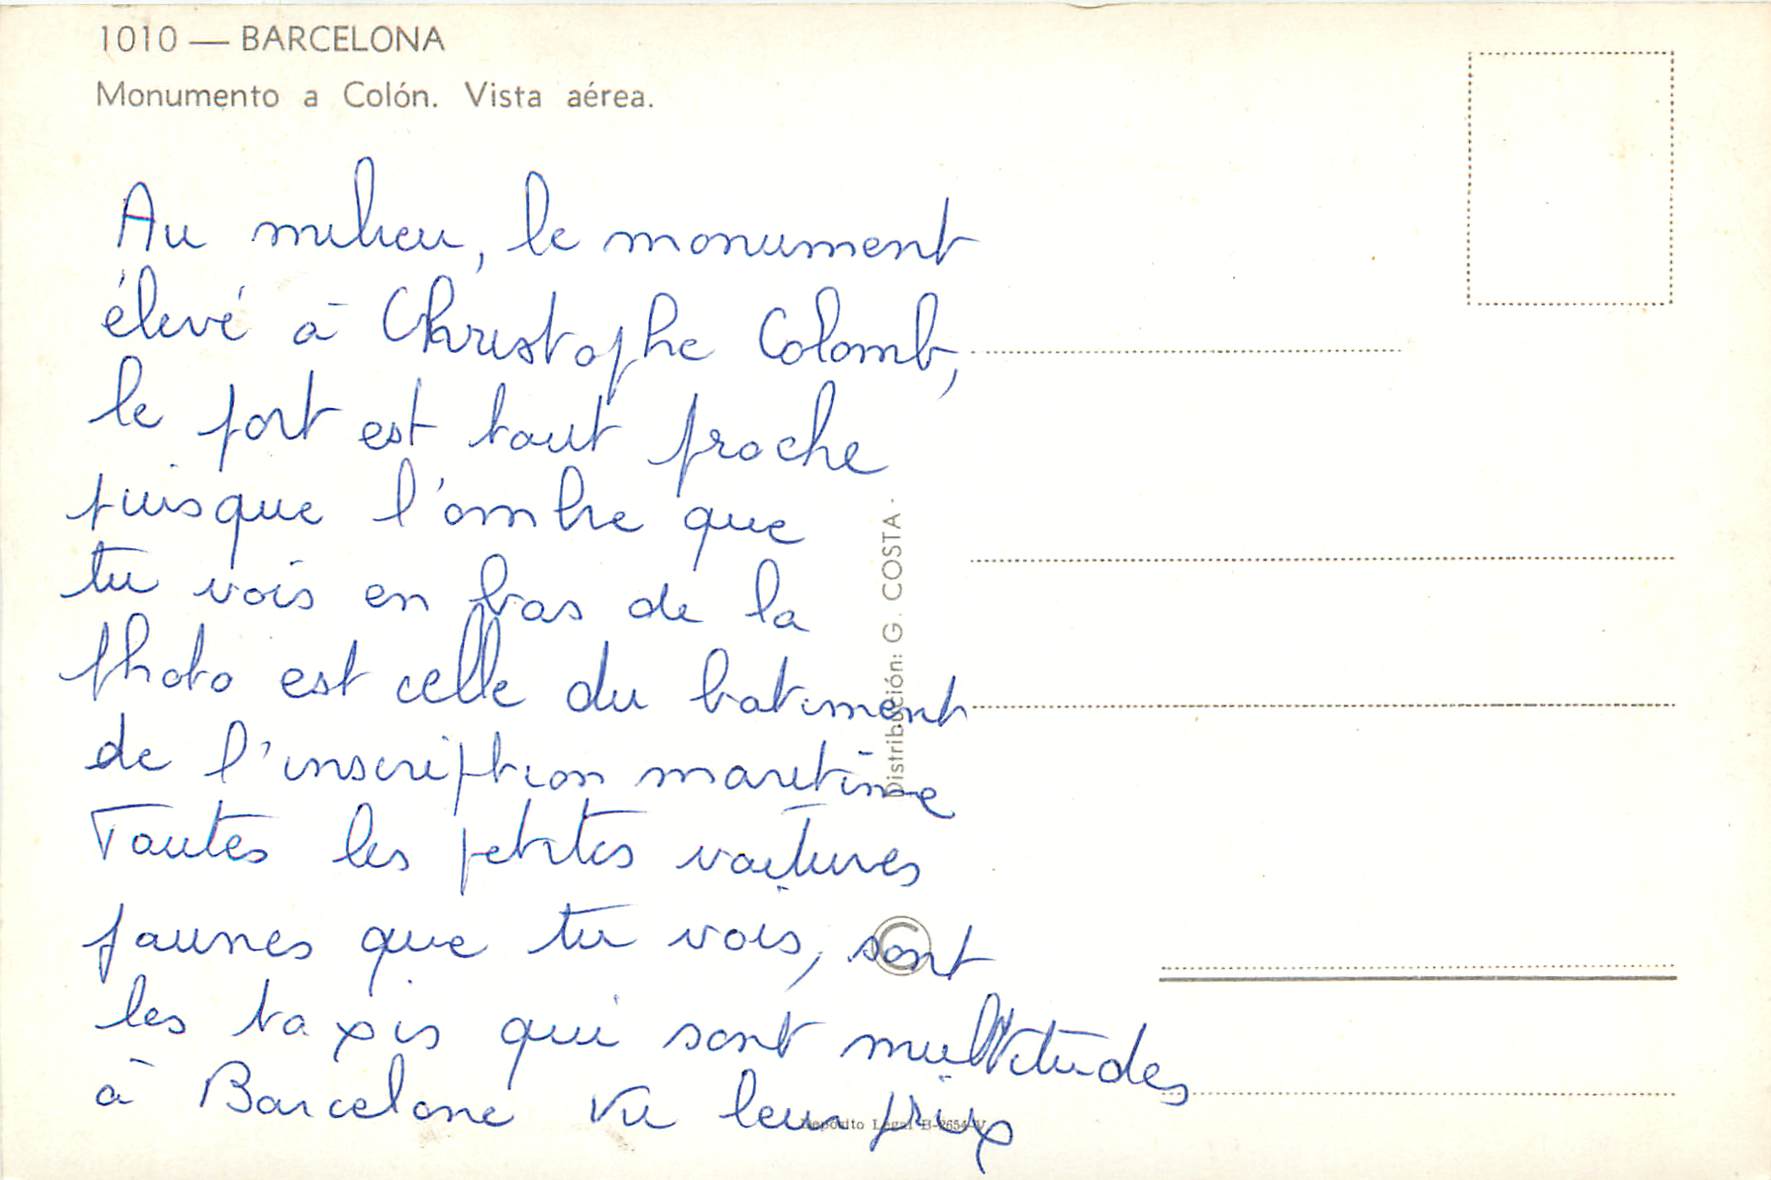 1010 — BARCELONA
Monumento a Colón. Vista aérea.
Au milieu, le monument
élevé à Christophe Colomb,
le port est tout proche
puisque l'ombre que
tu vois en bas de la
photo est celle du batiment
de l'inscription maritime
Toutes les petites voitures
jaunes que tu vois, sont
les taxis qui sont multitudes
à Barcelone vu leur prix
Distribución: G. COSTA.
©
Depósito Legal B-2654-V